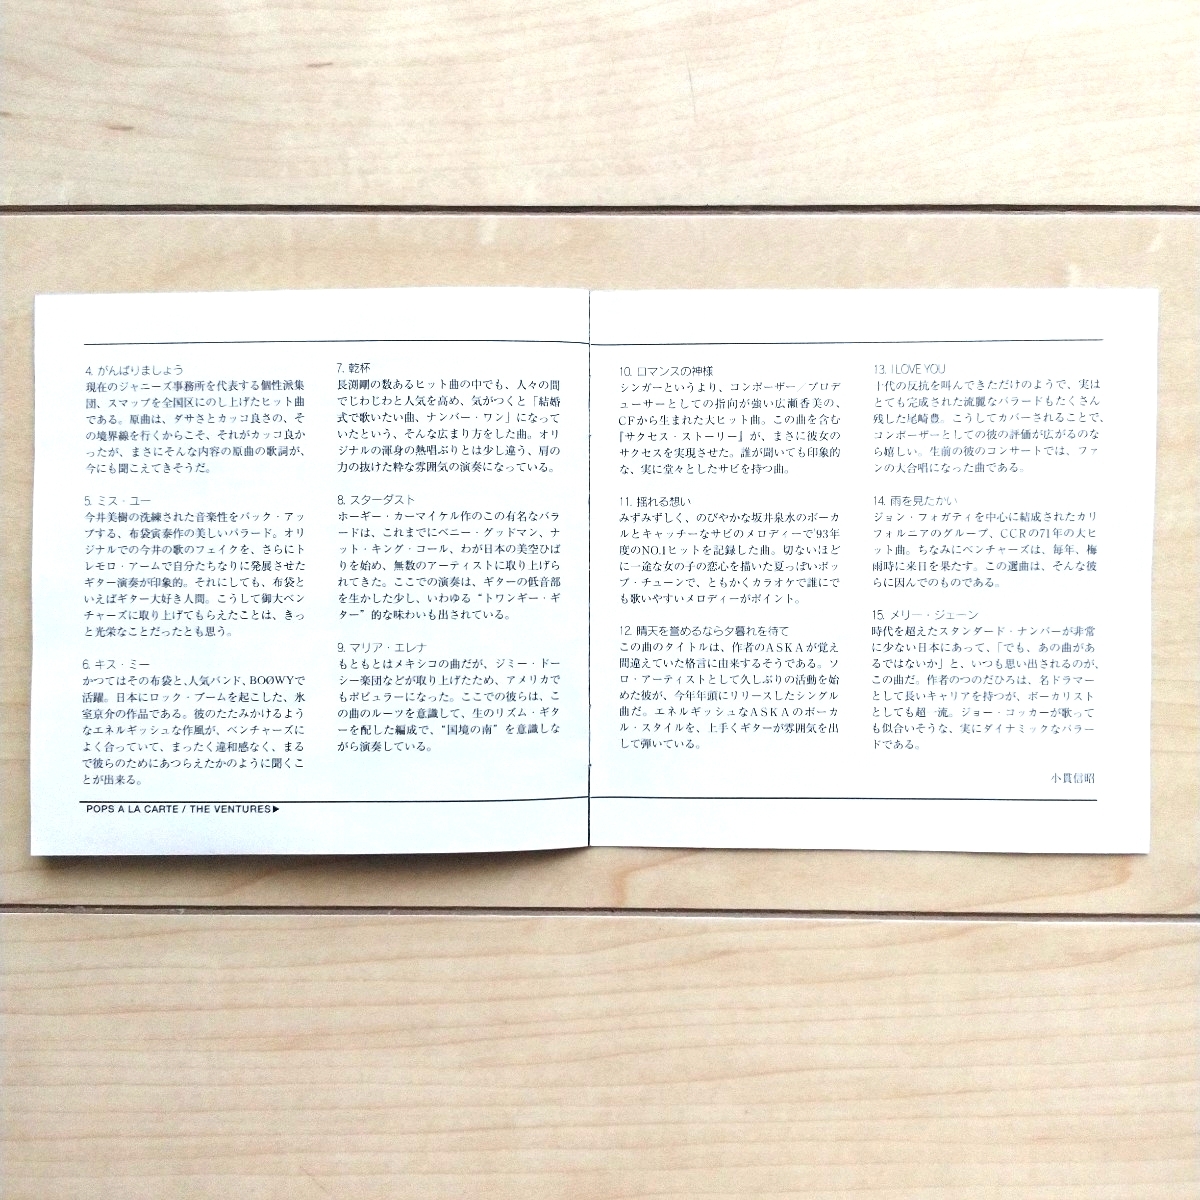 4. がんばりましょう
現在のジャニーズ事務所を代表する個性派集
団、スマップを全国区にのし上げたヒット曲
である。原曲は、ダサさとカッコ良さの、そ
の境界線を行くからこそ、それがカッコ良か
ったが、まさにそんな内容の原曲の歌詞が、
今にも聞こえてきそうだ。
5. ミス・ユー
今井美樹の洗練された音楽性をバック・アッ
プする、布袋寅泰作の美しいバラード。オリ
ジナルでの今井の歌のフェイクを、さらにト
レモロ・アームで自分たちなりに発展させた
ギター演奏が印象的。それにしても、布袋と
いえばギター大好き人間。こうして御大ベン
チャーズに取り上げてもらえたことは、きっ
と光栄なことだったとも思う。
6. キス・ミー
かつてはその布袋と、人気バンド、BOØWYで
活躍。日本にロック・ブームを起こした、氷
室京介の作品である。彼のたたみかけるよう
なエネルギッシュな作風が、ベンチャーズに
よく合っていて、まったく違和感なく、まる
で彼らのためにあつらえたかのように聞くこ
とが出来る。
POPS A LA CARTE / THE VENTURES▶
7. 乾杯
長渕剛の数あるヒット曲の中でも、人々の間
でじわじわと人気を高め、気がつくと「結婚
式で歌いたい曲、ナンバー・ワン」になって
いたという、そんな広まり方をした曲。オリ
ジナルの渾身の熱唱ぶりとは少し違う、肩の
力の抜けた粋な雰囲気の演奏になっている。
8. スターダスト
ホーギー・カーマイケル作のこの有名なバラ
ードは、これまでにベニー・グッドマン、ナ
ット・キング・コール、わが日本の美空ひば
りを始め、無数のアーティストに取り上げら
れてきた。ここでの演奏は、ギターの低音部
を生かした少し、いわゆる“トワンギー・ギ
ター”的な味わいも出されている。
9. マリア・エレナ
もともとはメキシコの曲だが、ジミー・ドー
シー楽団などが取り上げたため、アメリカで
もポピュラーになった。ここでの彼らは、こ
の曲のルーツを意識して、生のリズム・ギタ
ーを配した編成で、“国境の南”を意識しな
がら演奏している。
10. ロマンスの神様
シンガーというより、コンポーザー／プロデ
ューサーとしての指向が強い広瀬香美の、
CFから生まれた大ヒット曲。この曲を含む
『サクセス・ストーリー』が、まさに彼女の
サクセスを実現させた。誰が聞いても印象的
な、実に堂々としたサビを持つ曲。
11. 揺れる想い
みずみずしく、のびやかな坂井泉水のボーカ
ルとキャッチーなサビのメロディーで'93年
度のNO.1ヒットを記録した曲。切ないほど
に一途な女の子の恋心を描いた夏っぽいポッ
プ・チューンで、ともかくカラオケで誰にで
も歌いやすいメロディーがポイント。
12. 晴天を誉めるなら夕暮れを待て
この曲のタイトルは、作者のASKAが覚え
間違えていた格言に由来するそうである。ソ
ロ・アーティストとして久しぶりの活動を始
めた彼が、今年年頭にリリースしたシングル
曲だ。エネルギッシュなASKAのボーカ
ル・スタイルを、上手くギターが雰囲気を出
して弾いている。
13. I LOVE YOU
十代の反抗を叫んできただけのようで、実は
とても完成された流麗なバラードもたくさん
残した尾崎豊。こうしてカバーされることで、
コンポーザーとしての彼の評価が広がるのな
ら嬉しい。生前の彼のコンサートでは、ファ
ンの大合唱になった曲である。
14. 雨を見たかい
ジョン・フォガティを中心に結成されたカリ
フォルニアのグループ、CCRの71年の大ヒ
ット曲。ちなみにベンチャーズは、毎年、梅
雨時に来日を果たす。この選曲は、そんな彼
らに因んでのものである。
15. メリー・ジェーン
時代を超えたスタンダード・ナンバーが非常
に少ない日本にあって、「でも、あの曲があ
るではないか」と、いつも思い出されるのが、
この曲だ。作者のつのだひろは、名ドラマー
として長いキャリアを持つが、ボーカリスト
としても超一流。ジョー・コッカーが歌って
も似合いそうな、実にダイナミックなバラー
ドである。
小貫信昭